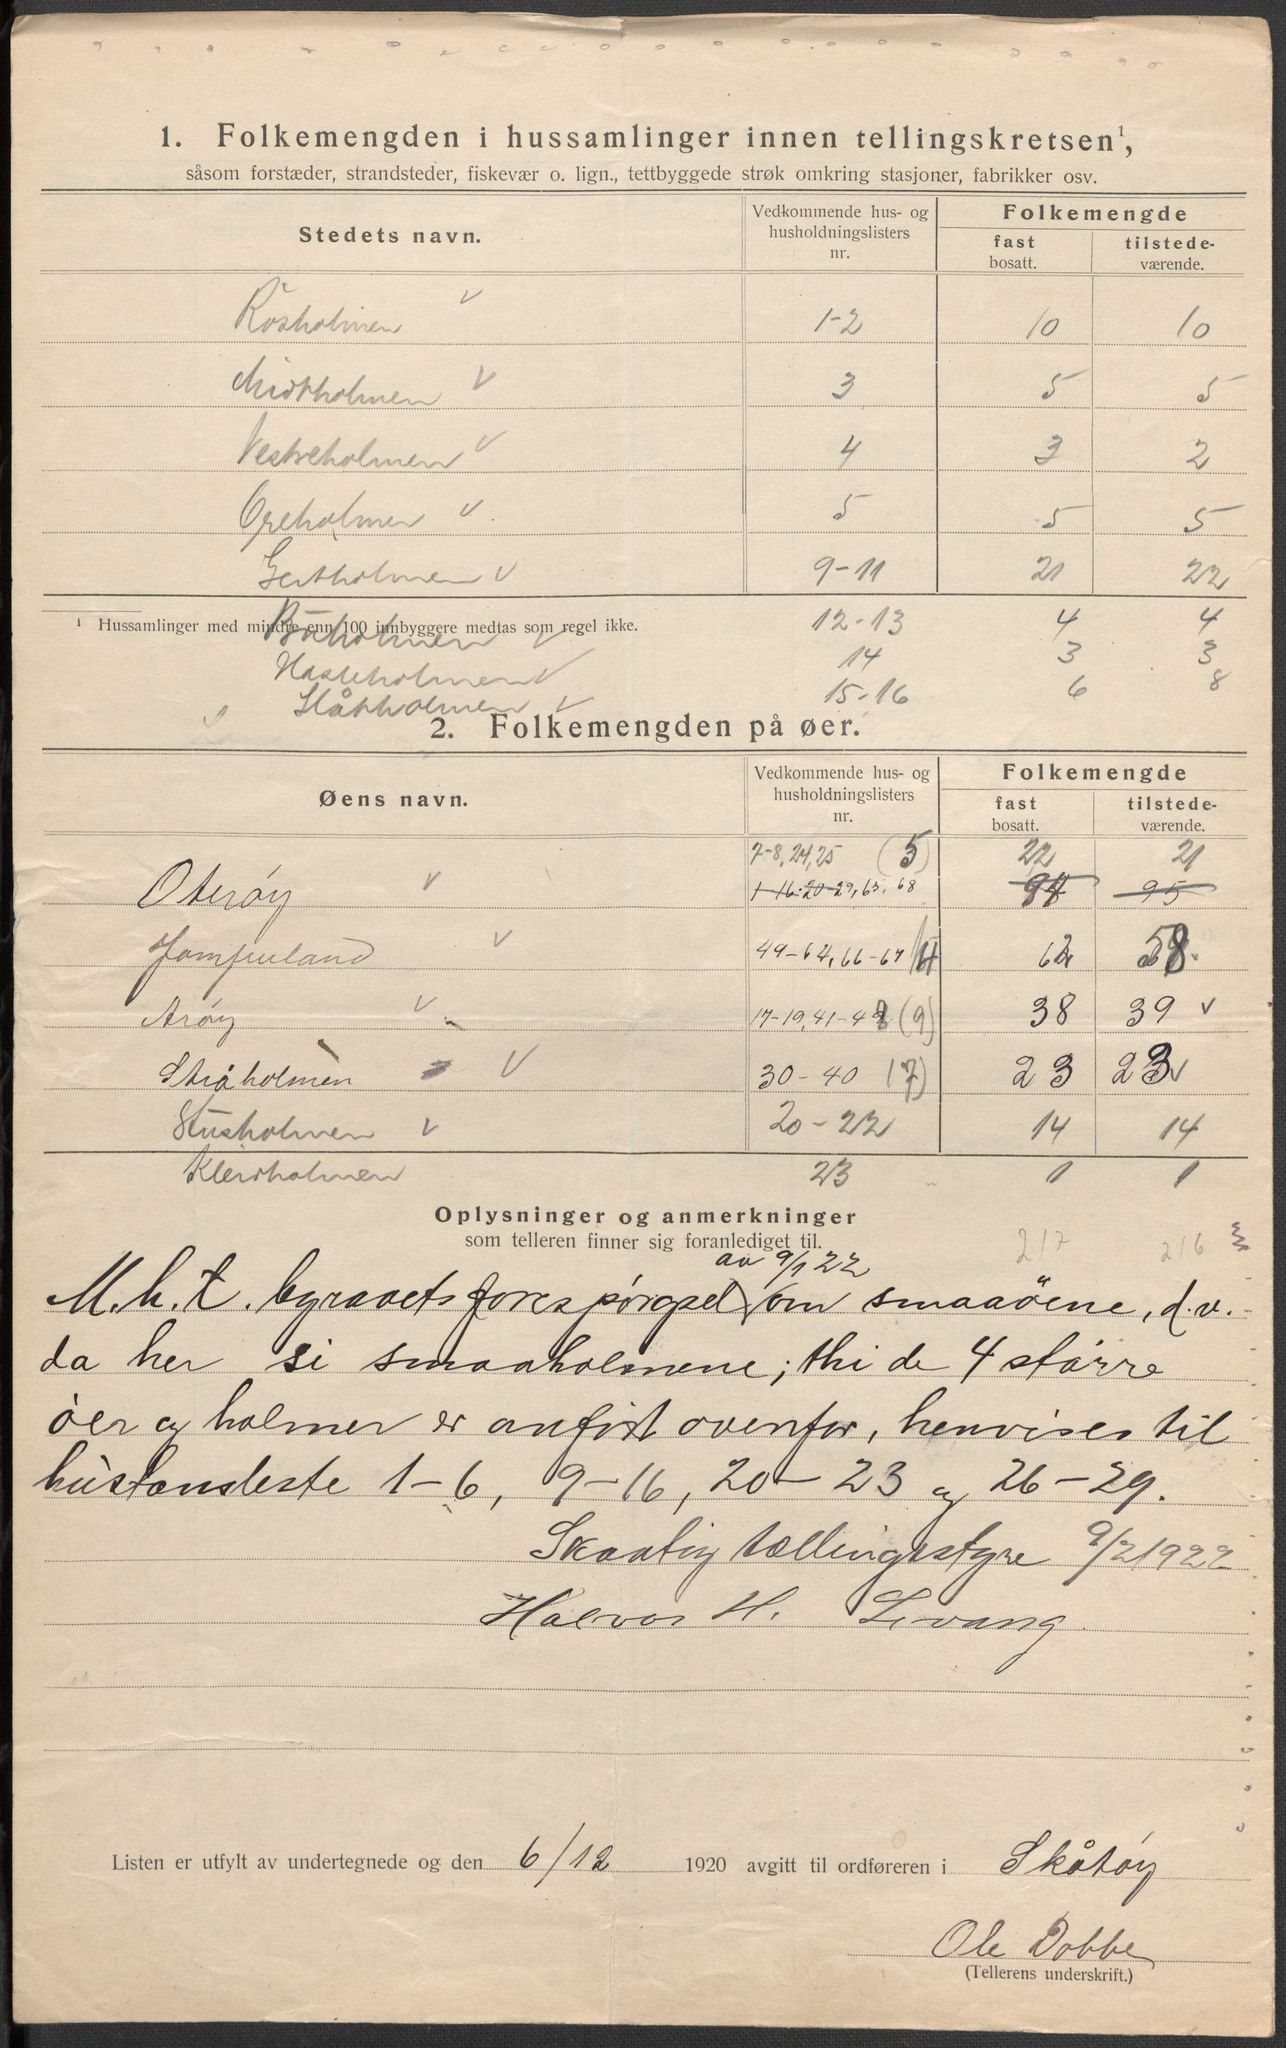 1. Folkemengden i hussamlinger innen tellingskretsen¹,
såsom forstæder, strandsteder, fiskevær o. lign., tettbyggede strøk omkring stasjoner, fabrikker osv.
Stedets navn. Vedkommende hus- og husholdningslisters nr. Folkemengde fast bosatt. tilstede-værende.
Rösholmen v 1-2 10 10
Midtholmen v 3 5 5
Vestreholmen v 4 3 2
Oreholmen v 5 5 5
Gertholmen v 9-11 21 22
¹ Hussamlinger med mindre enn 100 innbyggere medtas som regel ikke.
v 12-13 4 4
Hasleholmen v 14 3 3
Håtholmen v 15-16 6 8
2. Folkemengden på øer.
Øens navn. Vedkommende hus- og husholdningslisters nr. Folkemengde fast bosatt. tilstede-værende.
7-8, 24, 25 (5) 22 21
Oterøy v 1-16, 20-29, 65, 68 95
Jomfruland v 49-64, 66-67 62 58
Arøy v 17-19, 41-48 (9) 38 39 v
Stråholmen v 30-40 (7) 23 23 v
Stusholmen v 20-22 14 14
Kleivholmen 23 1 1
Oplysninger og anmerkninger
som telleren finner sig foranlediget til. 217 216
av 9/1 22
M.h.t. byraaets forespørgsel om smaaöene, d.v.
da her si smaaholmene; thi de 4 större
öer og holmer er anført ovenfor, henvises til
husstandsliste 1-6, 9-16, 20-23 og 26-29.
Skaatöy tællingsstyre 9/2 1922
Halvor H. Levang
Listen er utfylt av undertegnede og den 6/12 1920 avgitt til ordføreren i Skåtøy
Ole Dobbe
(Tellerens underskrift.)